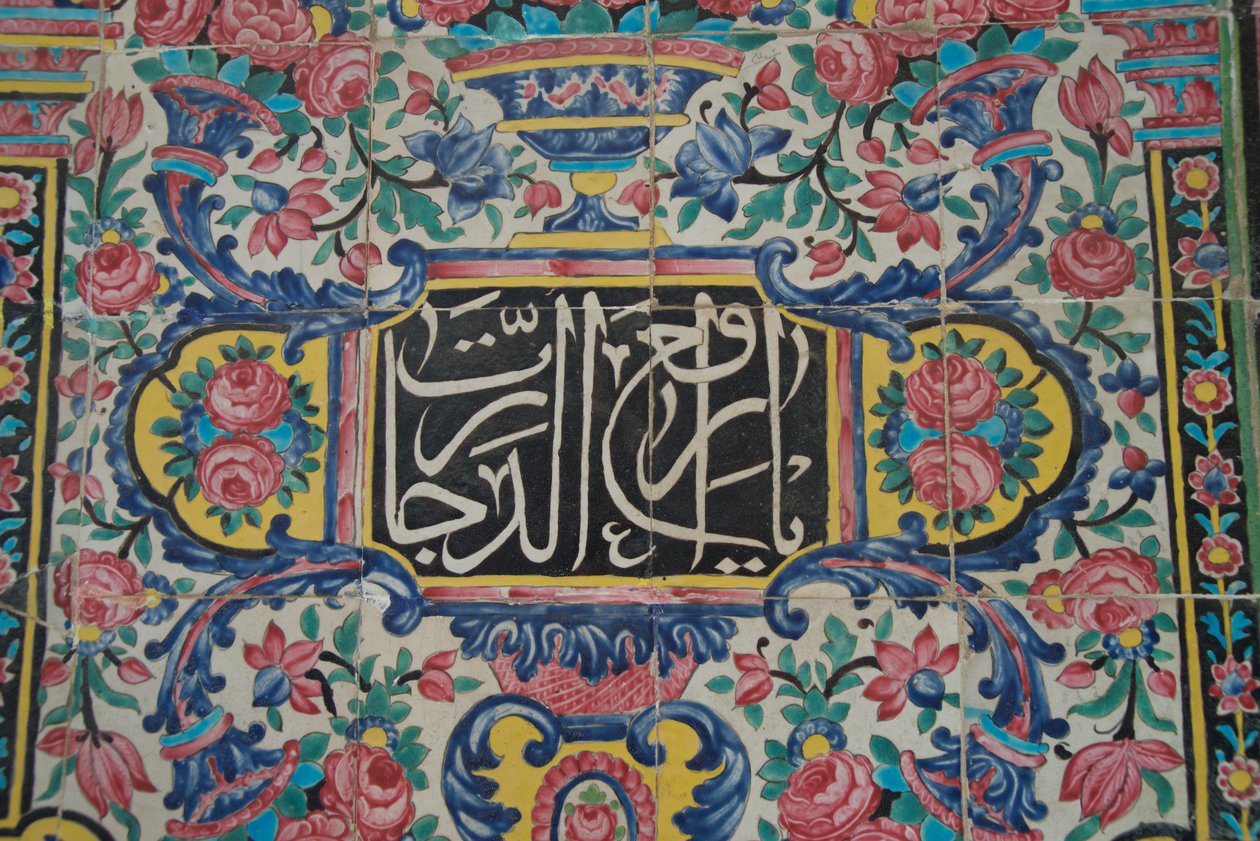 يا رافع الدرجات